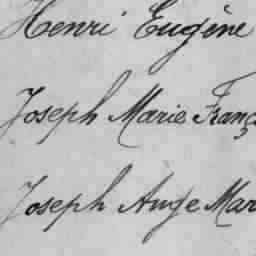 Henri Eugène
Joseph Marie Franç
Joseph Ange Mar